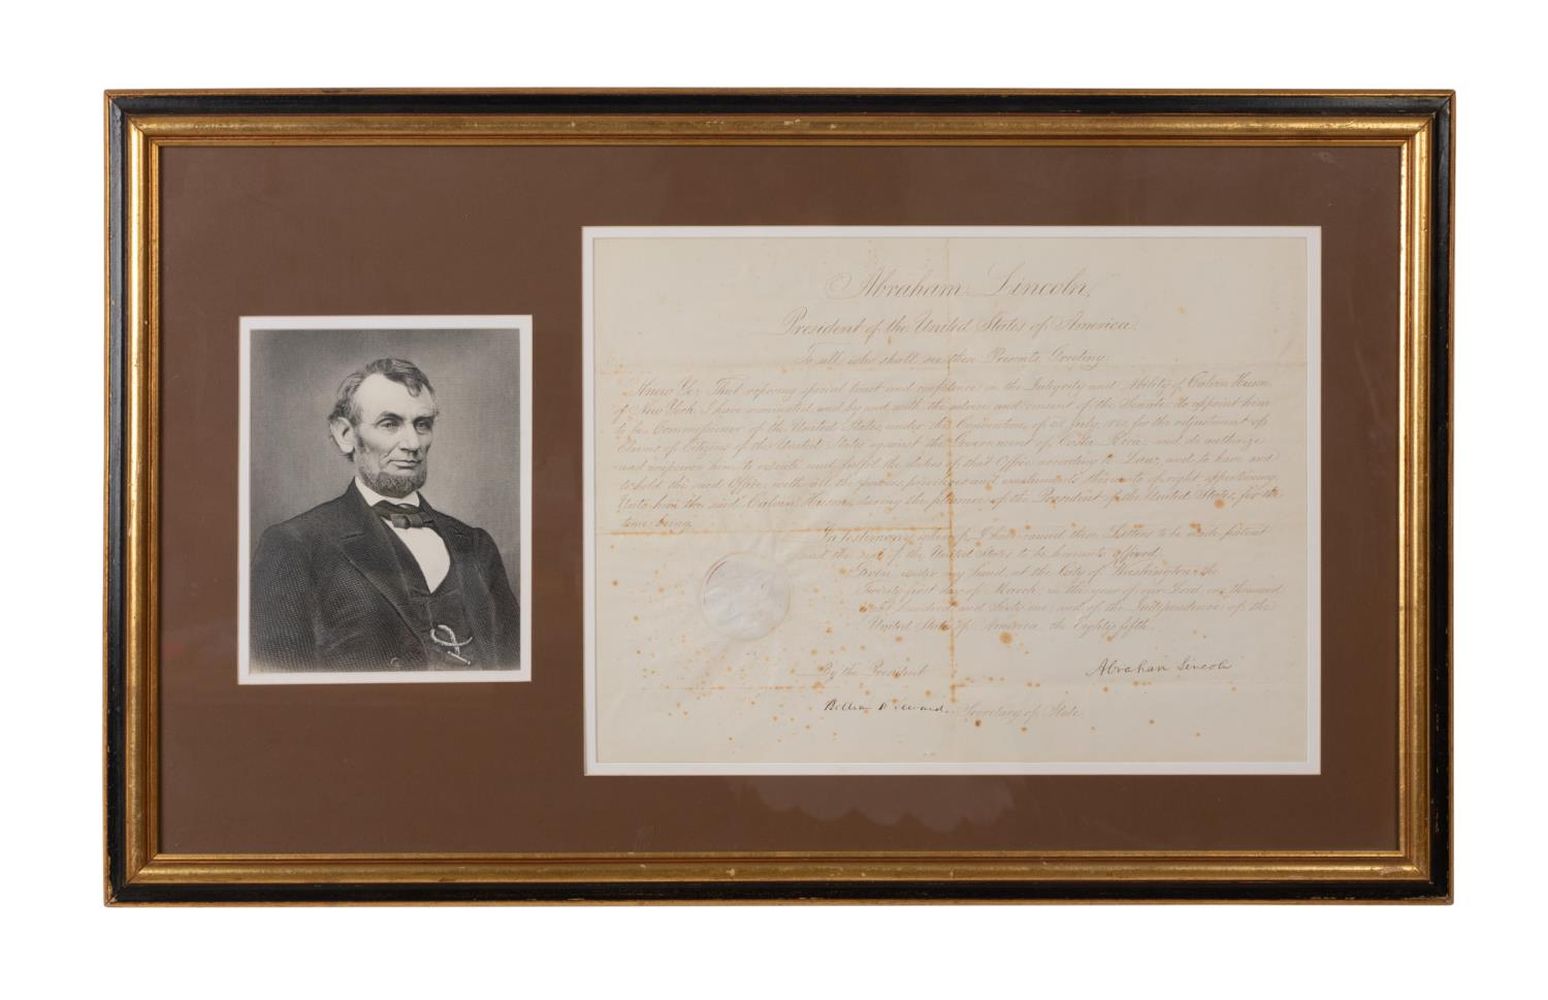 Abraham Lincoln,
President of the United States of America.
To all who shall see these Presents, Greeting:
Know Ye, That reposing special trust and confidence in the Integrity and Ability of Calvin Huson
of New York, I have nominated, and by and with the advice and consent of the Senate, do appoint him
to be Commissioner of the United States, under the Convention of July, for the adjustment of
Claims of Citizens of the United States against the Government of Costa Rica: and do authorize
and empower him to execute and fulfil the duties of that Office according to Law, and to have and
to hold the said Office, with all the powers, privileges and emoluments thereunto of right appertaining
Unto him the said Calvin Huson, during the pleasure of the President of the United States, for the
time being.
In testimony whereof, I have caused these Letters to be made patent
and the seal of the United States to be hereunto affixed.
Given under my hand, at the City of Washington, the
Twenty first day of March, in the year of our Lord one thousand
eight hundred and sixty one, and of the Independence of the
United States of America, the Eighty fifth.
By the President
Abraham Lincoln
Secretary of State.